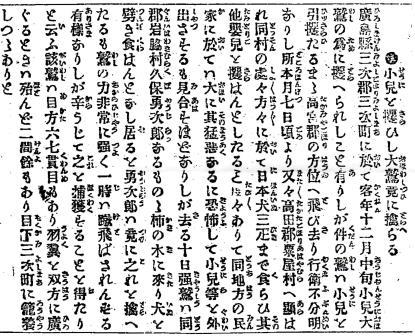 ◎小兒を攫ひし大鷲竟に擒らる
廣島縣三次郡三次町に於て客年十二月中旬小兒大
鷲の爲に攫へられしこと有りしが件の鷲ハ小兒を
引攫たるまゝ高宮郡の方位へ飛び去り行衛不分明
なりし所本月七日頃より又々高田郡粟屋村へ顯は
れ同村の處々方々に於て日本犬三疋まで食らひ其
他嬰兒を攫はんとしたること度々ありて同地方の民
家に於てハ大に其猛惡なるに恐怖して小兒等を外
出させるも見合せるほどなりしが去る十日強鷲ハ同
郡岩脇村久保勇次郎なるものゝ柿の木に來り犬を
劈き食はんとなし居ると勇次郎ハ竟に之れを擒へ
たるも鷲の力非常に強く一時ハ蹴飛ばされんずる
有樣なりしが辛うじて之を捕獲することを得たり
と云ふ該鷲ハ目方六七貫目もあり羽翼を双方に廣
ぐるときハ殆んど二間餘もあり目下三次町に籠養
しつゝありと